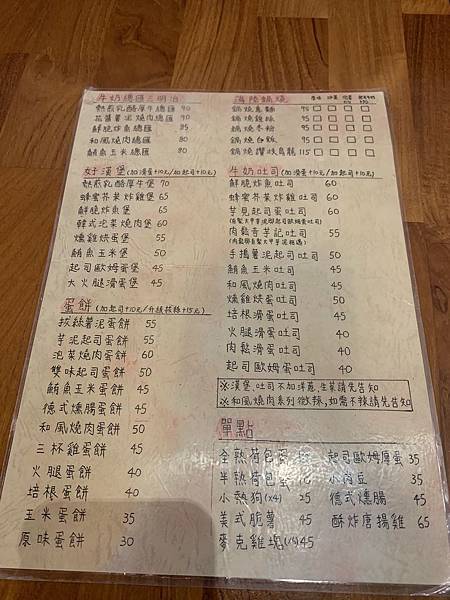 牛奶總匯三明治
熱煎乳酪厚牛總匯 90
花薑薯泥燒肉總匯 90
鮮脆炸魚總匯 85
和風燒肉總匯 80
鮪魚玉米總匯 80
好漢堡(加滑蛋+10元/加起司+10元)
熱煎乳酪厚牛堡 70
蜂蜜芥茉炸雞堡 60
鮮脆炸魚堡 60
韓式泡菜燒肉堡 60
燻雞烘蛋堡 55
鮪魚玉米堡 50
起司歐姆蛋堡 45
大火腿滑蛋堡 45
蛋餅(加起司+10元/升級菝絲+15元)
拔絲薯泥蛋餅 55
芋泥起司蛋餅 55
泡菜燒肉蛋餅 60
雙味起司蛋餅 50
鮪魚玉米蛋餅 45
德式燻腸蛋餅 45
和風燒肉蛋餅 50
三杯雞蛋餅 45
火腿蛋餅 40
培根蛋餅 40
玉米蛋餅 35
原味蛋餅 30
海陸鍋燒
鍋燒意麵 95
鍋燒雞絲 95
鍋燒冬粉 95
鍋燒白飯 95
鍋燒讚岐烏龍 115
牛奶吐司(加滑蛋+10元/加起司+10元)
鮮脆炸魚吐司 60
蜂蜜芥茉炸雞吐司 60
芋見起司蛋吐司 60
肉鬆奇芋記吐司 55
手搗薯泥起司吐司 50
鮪魚玉米吐司 50
和風燒肉吐司 50
燻雞烘蛋吐司 50
培根滑蛋吐司 40
火腿滑蛋吐司 40
肉鬆滑蛋吐司 40
起司歐姆蛋吐司 40
※漢堡,吐司不加洋蔥,生菜請先告知
※和風燒肉系列微辣,如需不辣請先告知
單點
全熟荷包蛋
半熟荷包蛋
小熱狗(x4) 25
美式脆薯 45
麥克雞塊 45
起司歐姆厚蛋 35
小肉豆 35
德式燻腸 45
酥炸唐揚雞 65